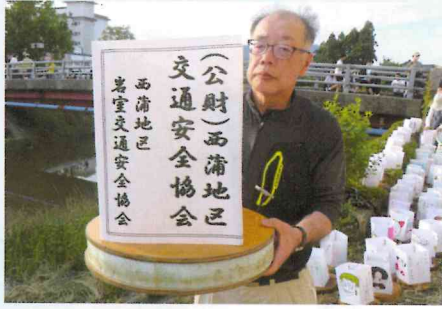 (公財)西蒲地区
交通安全協会
西蒲地区
岩室交通安全協会